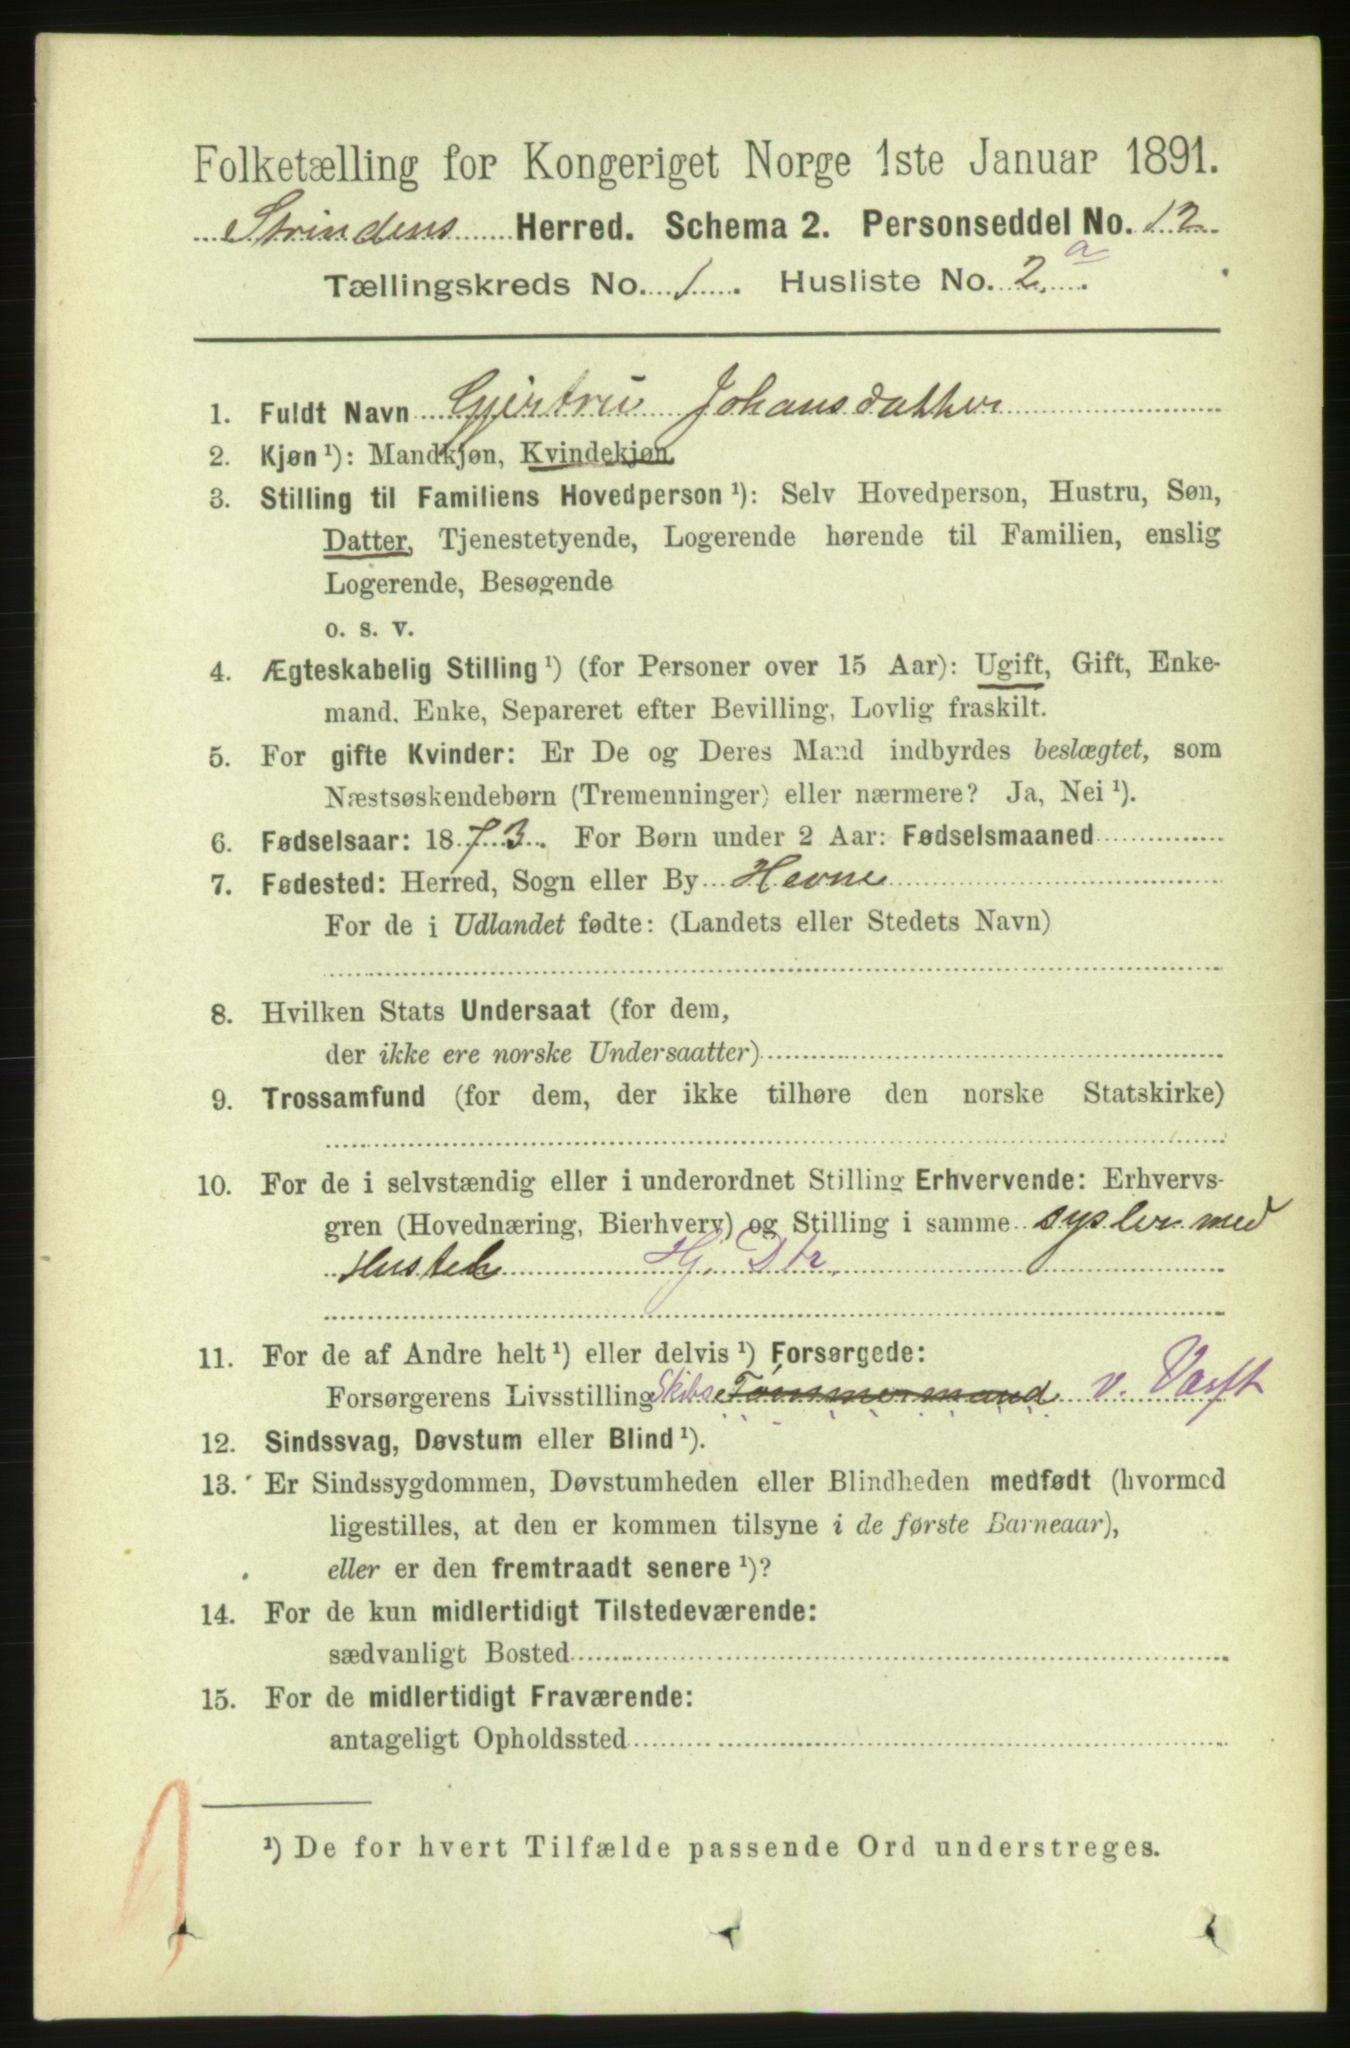 Folketælling for Kongeriget Norge 1ste Januar 1891.
Strindens Herred. Schema 2. Personseddel No. 12
Tællingskreds No. 1. Husliste No. 2.a
1. Fuldt Navn Gjertru Johansdatter
2. Kjøn ¹): Mandkjøn, Kvindekjøn.
3. Stilling til Familiens Hovedperson ¹): Selv Hovedperson, Hustru, Søn,
Datter, Tjenestetyende, Logerende hørende til Familien, enslig
Logerende, Besøgende
o. s. v.
4. Ægteskabelig Stilling ¹) (for Personer over 15 Aar): Ugift, Gift, Enke-
mand, Enke, Separeret efter Bevilling, Lovlig fraskilt.
5. For gifte Kvinder: Er De og Deres Mand indbyrdes beslægtet, som
Næstsøskendebørn (Tremenninger) eller nærmere? Ja, Nei ¹).
6. Fødselsaar: 1873. For Børn under 2 Aar: Fødselsmaaned
7. Fødested: Herred, Sogn eller By Hevne
For de i Udlandet fødte: (Landets eller Stedets Navn)
8. Hvilken Stats Undersaat (for dem,
der ikke ere norske Undersaatter)
9. Trossamfund (for dem, der ikke tilhøre den norske Statskirke)
10. For de i selvstændig eller i underordnet Stilling Erhvervende: Erhvervs-
gren (Hovednæring, Bierhverv) og Stilling i samme sysler med
Hj. Dtr.
11. For de af Andre helt ¹) eller delvis ¹) Forsørgede:
Forsørgerens Livsstilling Skibs Tømmermand v. Værft
12. Sindssvag, Døvstum eller Blind ¹).
13. Er Sindssygdommen, Døvstumheden eller Blindheden medfødt (hvormed
ligestilles, at den er kommen tilsyne i de første Barneaar),
eller er den fremtraadt senere ¹)?
14. For de kun midlertidigt Tilstedeværende:
sædvanligt Bosted
15. For de midlertidigt Fraværende:
antageligt Opholdssted
¹) De for hvert Tilfælde passende Ord understreges.